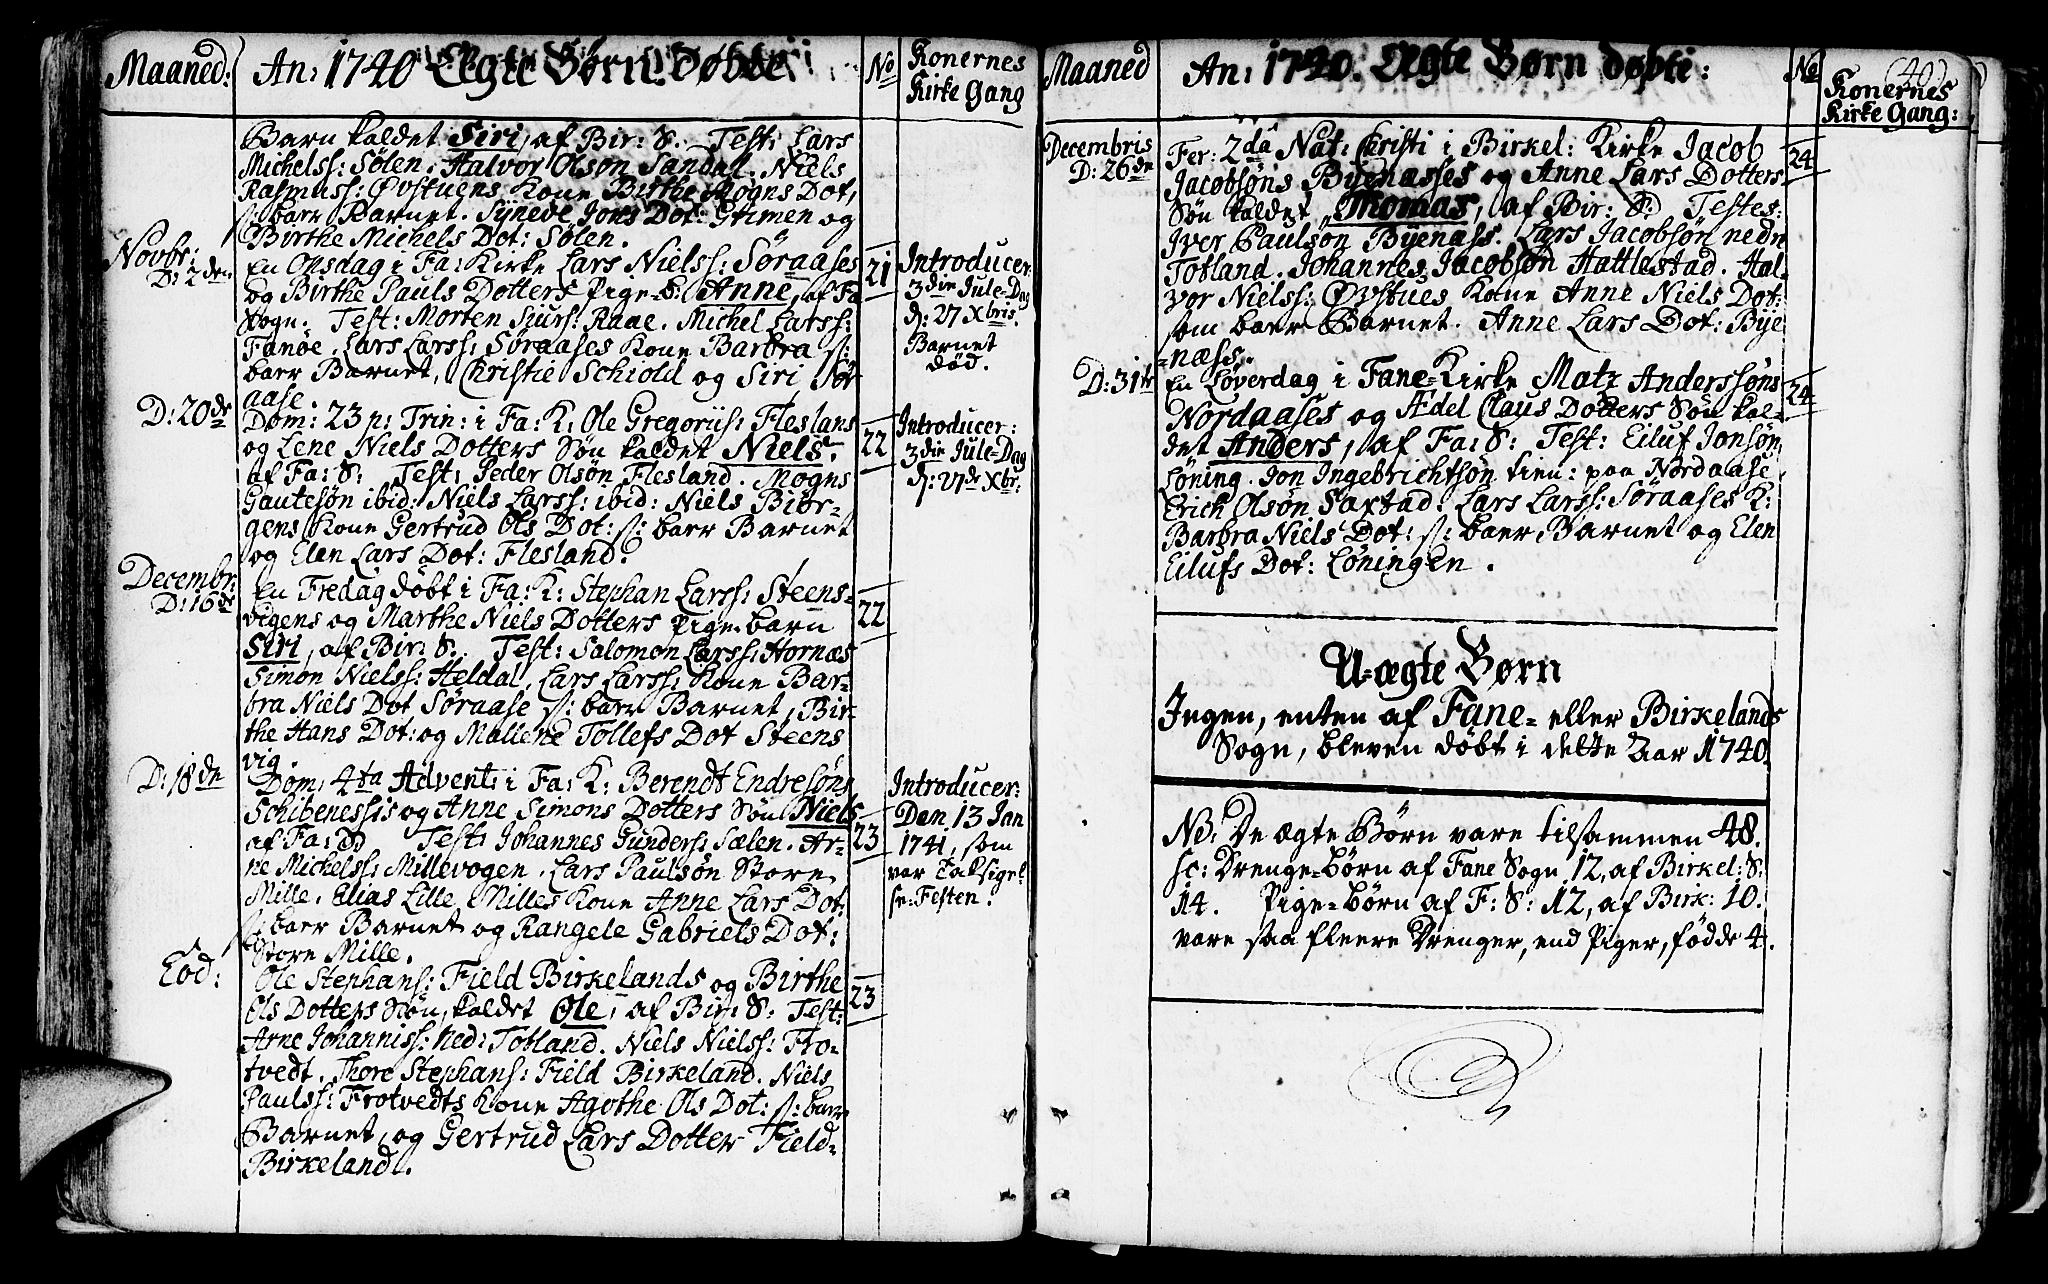 Maaned: An: 1740 Ægte Børn Døbte: No Konernes Kirke Gang
Barn kaldet Siri, af Bir: S. Test: Lars
Michelss: Sølen. Halvor Olsøn Sandal. Niels
Rasmuss: Øvstuens Kone Birthe Mogns Dot,
s: baer Barnet. Syneve Jons Dot: Grimen og
Birthe Michels Dot: Sølen.
Novbr:
D: 2den
En Onsdag i Fa: Kirke Lars Nielss: Søraases
og Birthe Pauls Dotters Pige-b: Anne, af Fa
Sogn. Test: Morten Siurs: Raae. Michel Larss:
Fanøe. Lars Larss: Søraases Kone Barbra s:
baer Barnet, Christie Schiold og Siri Sør
aase.
21
Introducer:
3die Jule-Dag
D: 27 Xbris.
Barnet
død.
D: 20de
Dom: 23 p: Trin: i Fa: K: Ole Gregoriis: Fleslans
og Lene Niels Dotters Søn kaldet Niels.
af Fa: S: Test: Peder Olsøn Flesland. Mogns
Gautesøn ibid: Niels Larss: ibid: Niels Biør-
gens Kone Gertrud Ols Dot: s: baer Barnet
og Elen Lars Dot: Flesland.
22
Introducer:
3die Jule-Dag
D: 27de Xbr:
Decembr:
D: 16de
En Fredag døbt i Fa: K: Stephan Larss: Steens-
vigens og Marthe Niels Dotters Pige-barn
Siri, af Bir: S. Test: Salomon Larss: Hornæs
Simon Nielss: Heldal, Lars Larss: Kone Bar-
bra Niels Dot Søraase s: baer Barnet, Bir-
the Hans Dot: og Malene Tollefs Dot Steens
vig.
22
D: 18de
Dom: 4ta Advent: i Fa: K: Berendt Endresøns
Schibenessis og Anne Simons Dotters Søn Niels
af Fa: S Test: Johannes Gunders: Sælen. Ar-
ne Michelss: Millevogen. Lars Paulsøn Store
Mille. Elias Lille Milles Kone Anne Lars Dot:
s: baer Barnet og Rangele Gabriels Dot:
Store Mille.
23
Introducer:
Den 13 Jan
1741, som
var Taksigel-
se-Festen.
Eod:
Ole Stephans: Field Birkelands og Birthe
Ols Dotters Søn, kaldet Ole, af Bir: S: Test:
Arne Johanniss: Ned: Totland. Niels Nielss: Fro-
tvedt. Thore Stephans: Field Birkeland. Niels
Paulss: Frotvedts Kone Agothe Ols Dot: s: baer
Barnet, og Gertrud Lars Dotter Field-
Birkeland.
23
Maaned An: 1740. Ægte Børn døbte: No Konernes Kirke Gang:
(40)
Decembris
D: 26de
Fer: 2da Nat: Christi i Birkel: Kirke Jacob
Jacobsøns Byenæsses og Anne Lars Dotters
Søn kaldet Thomas, af Bir: S: Testes:
Iver Paulsøn Byenæss. Lars Jacobsøn nedre
Totland. Johannes Jacobsøn Hattlestad. Hal-
vor Nielss: Øvstues Kone Anne Niels Dot:
som baer Barnet. Anne Lars Dot: Bye
-næss.
24
D: 31te
En Løverdag i Fane-Kirke Matz Anderssøns
Nordaases og Ædel Claus Dotters Søn kal-
det Anders, af Fa: S: Test: Eiluf Jonsøn
Løning. Jon Ingebrichtsøn tien: paa Nordaase
Erich Olsøn Saxtad. Lars Larss: Søraases K:
Barbra Niels Dot: s: baer Barnet og Elen
Eilufs Dot: Løningen.
24
U-ægte Børn
Ingen, enten af Fane- eller Birkelands
Sogn, bleven døbt i dette Aar 1740.
NB: De ægte Børn vare tilsammen 48.
sc: Drenge-børn af Fane Sogn 12, af Birkel: S:
14. Pige-børn af F: S: 12, af Birk: 10.
vare saa fleere Drenger, end Piger, fødde 4.